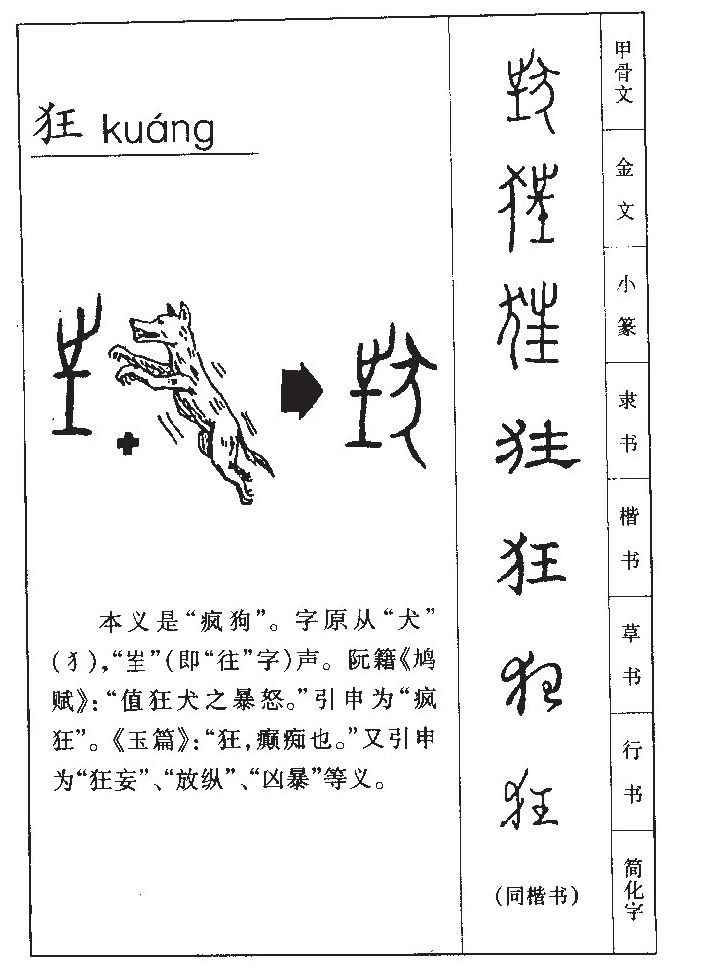 狂 kuáng
本义是“疯狗”。字原从“犬”
(犭),“㞷”(即“往”字)声。阮籍《鸠
赋》:“值狂犬之暴怒。”引申为“疯
狂”。《玉篇》:“狂,癫痴也。”又引申
为“狂妄”、“放纵”、“凶暴”等义。
狂
狂
狂
狂
(同楷书)
甲骨文
金文
小篆
隶书
楷书
草书
行书
简化字